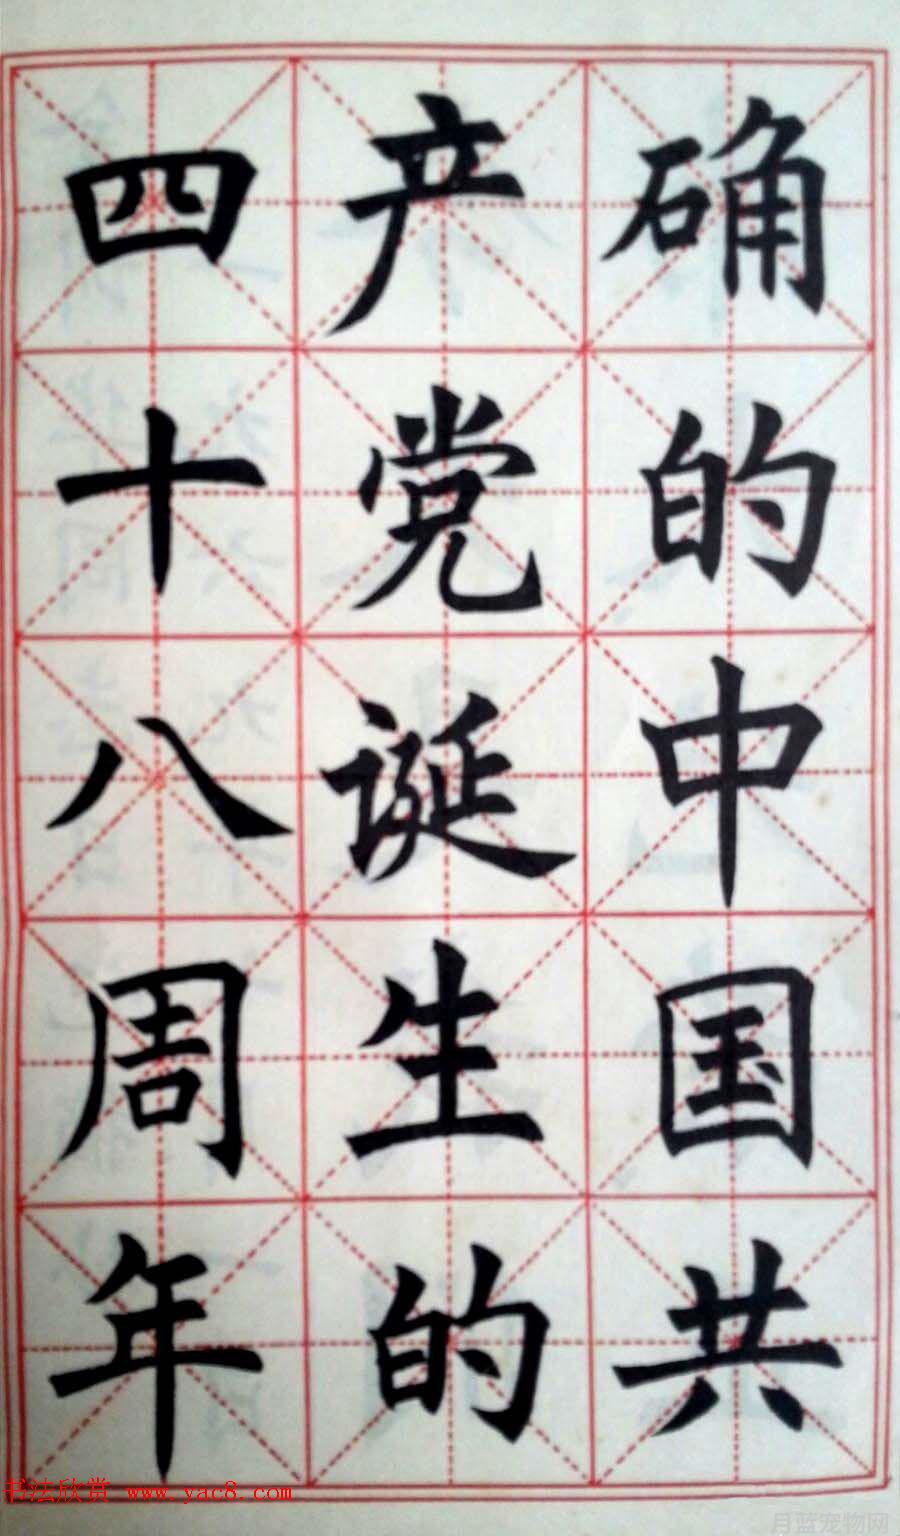 确的中国共
产党诞生的
四十八周年
书法欣赏 www.yac8.com
月蓝宠物网